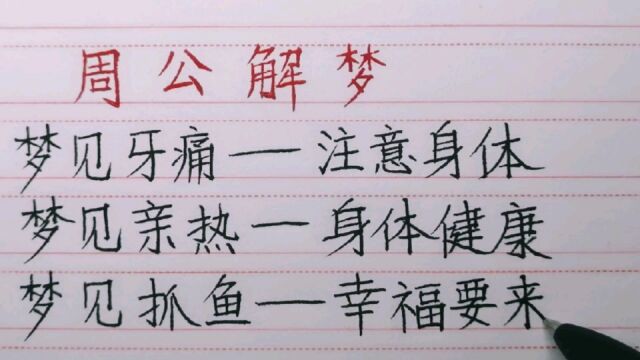 周公解梦
梦见牙痛一注意身体
梦见亲热一身体健康
梦见抓鱼一幸福要来